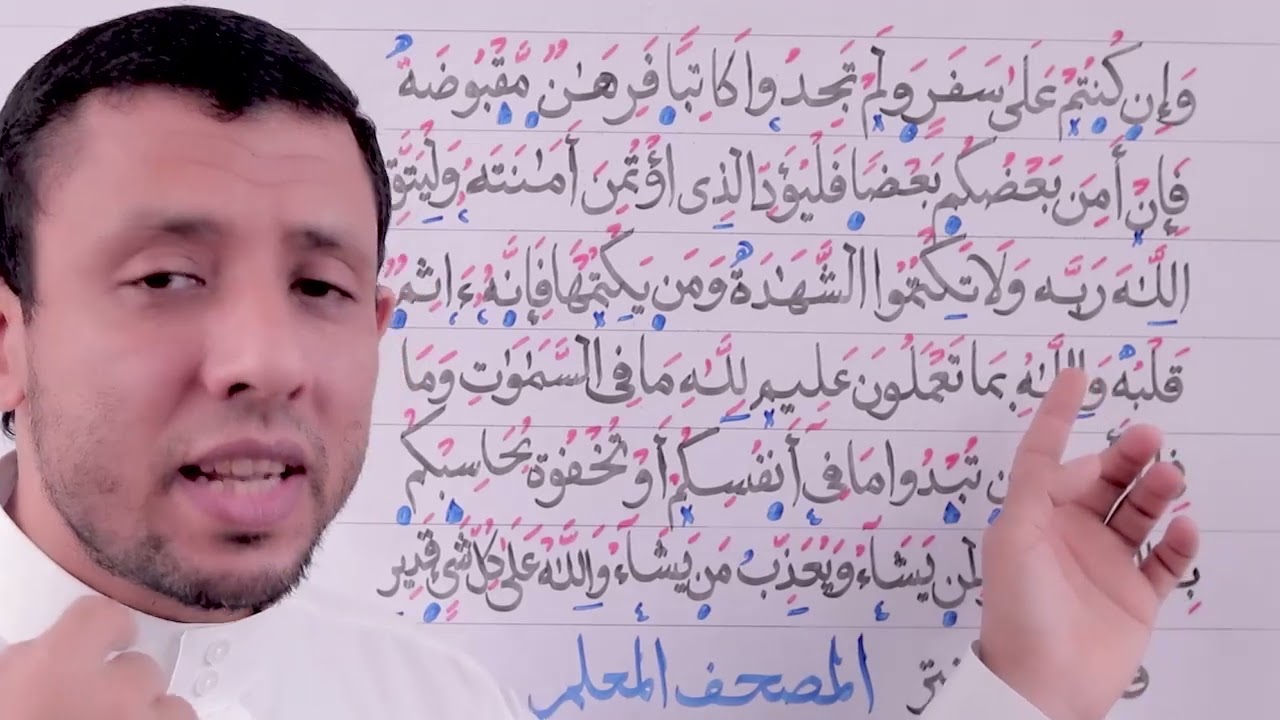 وَإِن كُنتُمْ عَلَىٰ سَفَرٍ وَلَمْ تَجِدُوا كَاتِبًا فَرِهَـٰنٌ مَّقْبُوضَةٌ
فَإِنْ أَمِنَ بَعْضُكُم بَعْضًا فَلْيُؤَدِّ الَّذِى اؤْتُمِنَ أَمَـٰنَتَهُ وَلْيَتَّقِ
اللَّهَ رَبَّهُ وَلَا تَكْتُمُوا الشَّهَـٰدَةَ وَمَن يَكْتُمْهَا فَإِنَّهُ ءَاثِمٌ
قَلْبُهُ وَاللَّهُ بِمَا تَعْمَلُونَ عَلِيمٌ لِلَّهِ مَا فِى السَّمَـٰوَٰتِ وَمَا
تُبْدُوا مَا فِىٓ أَنفُسِكُمْ أَوْ تُخْفُوهُ يُحَاسِبْكُم
يَشَآءُ وَيُعَذِّبُ مَن يَشَآءُ وَاللَّهُ عَلَىٰ كُلِّ شَىْءٍ قَدِيرٌ
المصحف المعلم